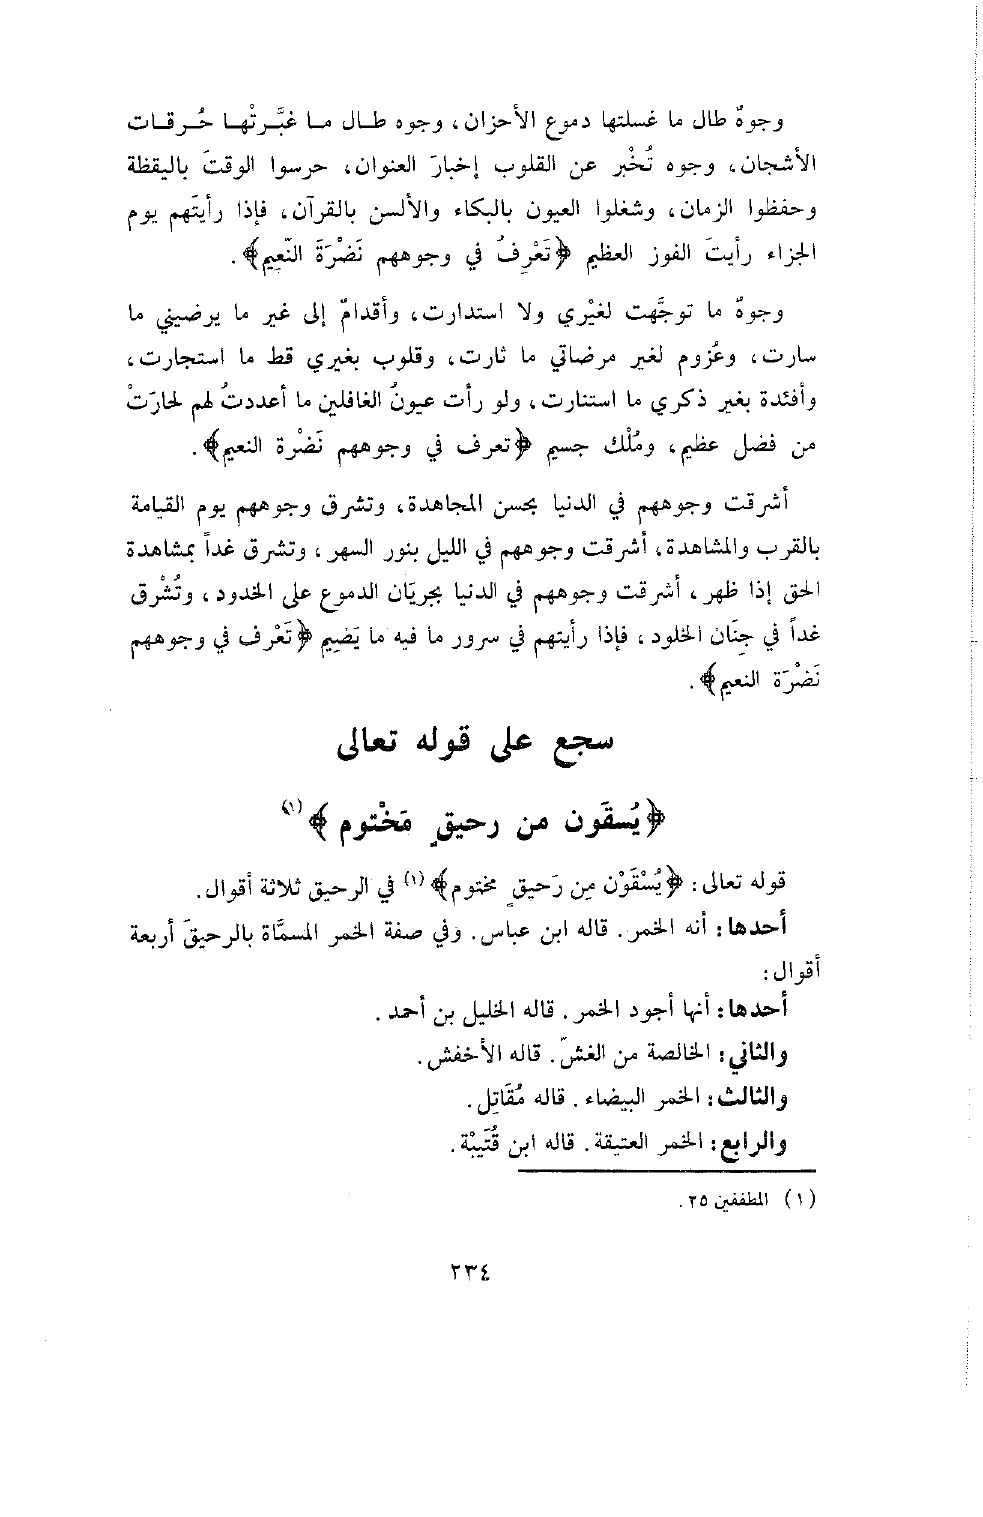 وجوهٌ طال ما غسلتها دموع الأحزان، وجوه طـال مـا غبَّـرتْهـا حُـرقـات
الأشجان، وجوه تُخْبر عن القلوب إخبارَ العنوان، حرسوا الوقتَ باليقظة
وحفظوا الزمان، وشغلوا العيون بالبكاء والألسن بالقرآن، فإذا رأيتَهم يوم
الجزاء رأيتَ الفوز العظيم ﴿تَعْرِفُ في وجوههم نَضْرَةَ النَّعِيم﴾.
وجوهٌ ما توجَّهت لغيْري ولا استدارت، وأقدامٌ إلى غير ما يرضيني ما
سارت، وعُزوم لغير مرضاتي ما ثارت، وقلوب بغيري قط ما استجارت،
وأفئدة بغير ذكري ما استنارت، ولو رأت عيونُ الغافلين ما أعددتُ لهم لحارَتْ
من فضل عظيم، ومُلْك جسيم ﴿تعرف في وجوههم نَضْرة النعيم﴾.
أشرقت وجوههم في الدنيا بحسن المجاهدة، وتشرق وجوههم يوم القيامة
بالقرب والمشاهدة، أشرقت وجوههم في الليل بنور السهر، وتشرق غداً بمشاهدة
الحق إذا ظهر، أشرقت وجوههم في الدنيا بجريَان الدموع على الخدود، وتُشْرق
غداً في جِنَان الخلود، فإذا رأيتهم في سرور ما فيه ما يَضِيم ﴿تَعْرف في وجوههم
نَضْرَة النعيم﴾.
سجع على قوله تعالى
﴿يُسقَون من رحيقٍ مَخْتوم﴾(١)
قوله تعالى: ﴿يُسْقَوْن مِن رَحيقٍ مختوم﴾(١) في الرحيق ثلاثة أقوال.
أحدها: أنه الخمر. قاله ابن عباس. وفي صفة الخمر المسمَّاة بالرحيقَ أربعة
أقوال:
أحدها: أنها أجود الخمر. قاله الخليل بن أحمد.
والثاني: الخالصة من الغشّ. قاله الأخفش.
والثالث: الخمر البيضاء. قاله مُقَاتِل.
والرابع: الخمر العتيقة. قاله ابن قُتَيبْة.
(١) المطففين ٢٥.
٢٣٤